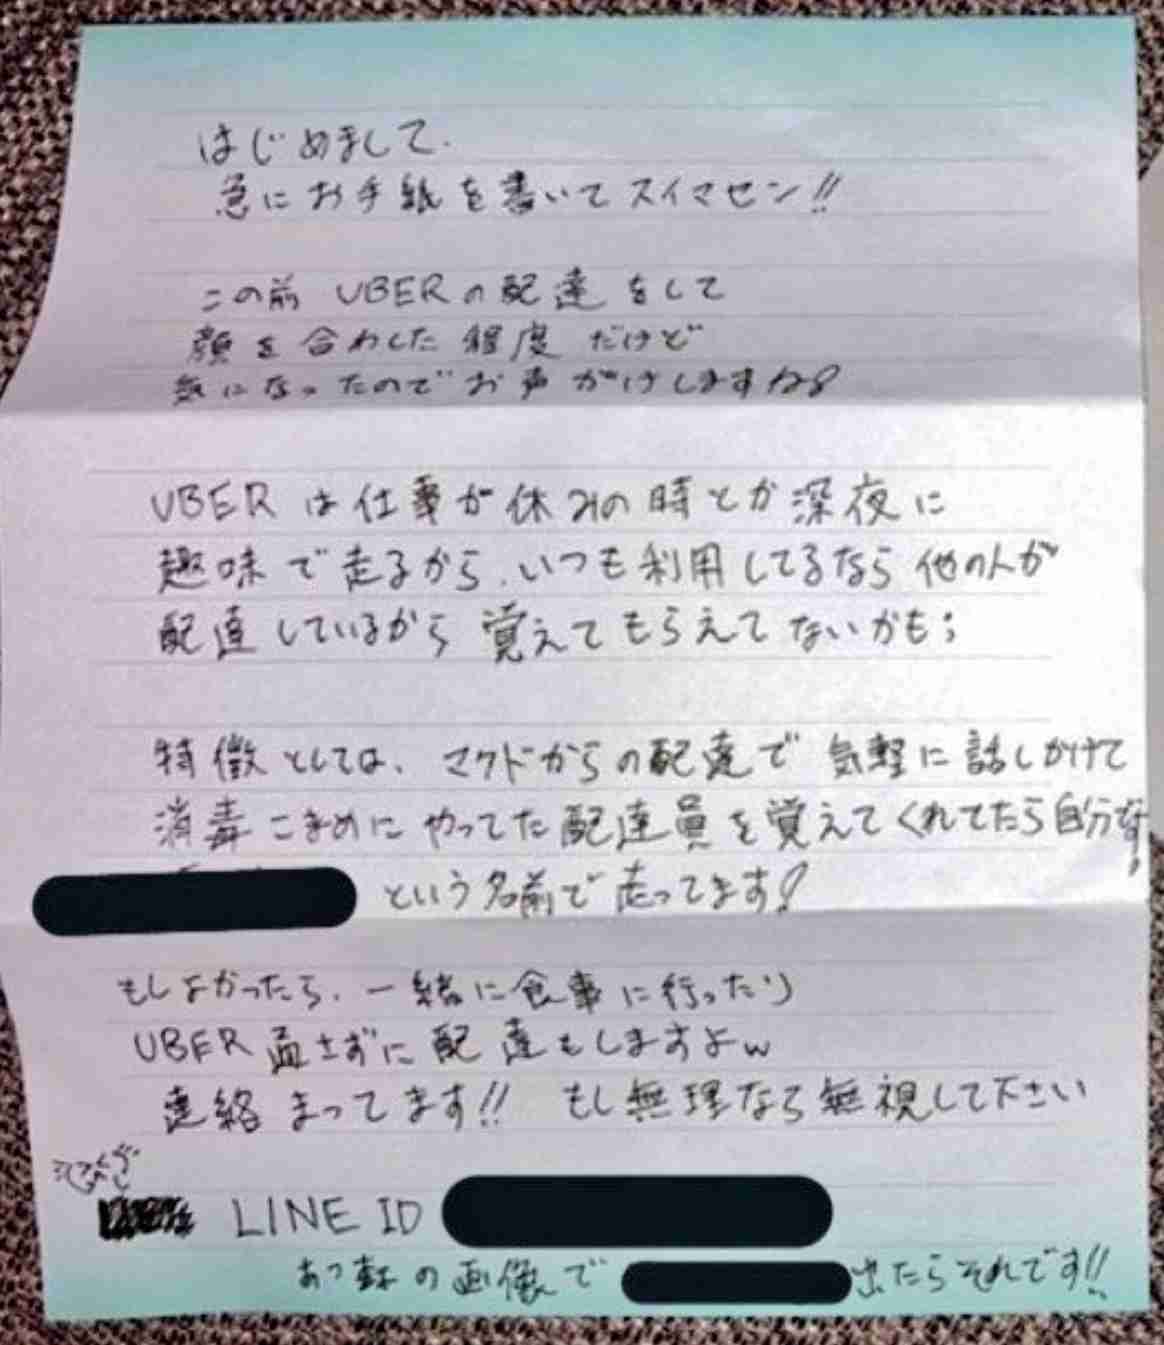 はじめまして.
急にお手紙を書いてスイマセン!!
この前 UBERの配達をして
顔を合わした程度だけど
気になったのでお声がけしますね!
UBERは仕事が休みの時とか深夜に
趣味で走るから、いつも利用してるなら他の人が
配達しているから覚えてもらえてないかも;
特徴としては、マクドからの配達で気軽に話しかけて
消毒こまめにやってた配達員を覚えてくれてたら自分です!
という名前で走ってます!
もしよかったら、一緒に食事に行ったり
UBER 通さずに配達もしますよw
連絡まってます!! もし無理なら無視して下さい
LINE ID
あっ の画像で 出たらそれです!!